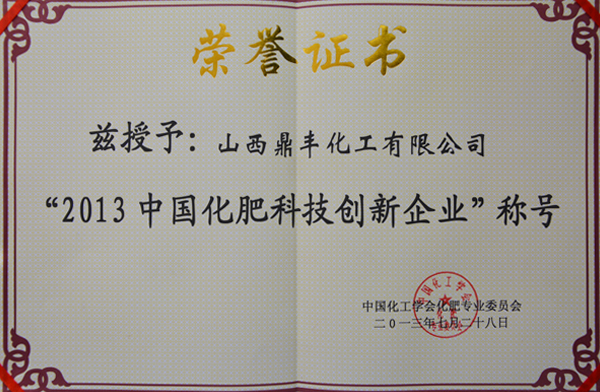 荣誉证书
兹授予：山西鼎丰化工有限公司
“2013中国化肥科技创新企业”称号
中国化工学会化肥专业委员会
二0一三年七月二十八日